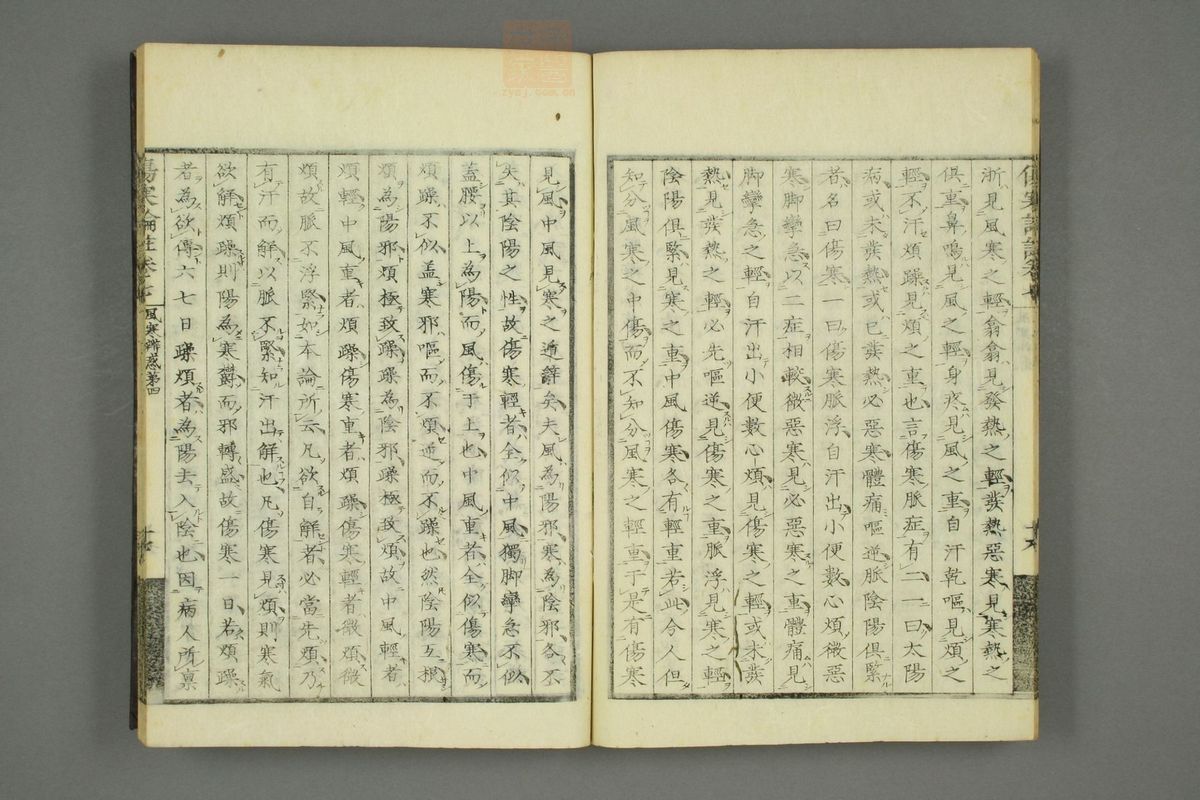 淅見風寒之輕翕翕見發熱之輕發熱惡寒見寒熱之
俱重鼻鳴見風之輕身疼見風之重自汗乾嘔見煩之
輕不汗煩躁見煩之重也言傷寒脈症有二一曰太陽
病或未發熱或已發熱必惡寒體痛嘔逆脈陰陽俱緊
者名曰傷寒一曰傷寒脈浮自汗出小便數心煩微惡
寒脚攣急以二症相較微惡寒見必惡寒之重體痛見
脚攣急之輕自汗出小便數心煩見傷寒之輕或未發
熱見發熱之輕必先嘔逆見傷寒之重脈浮見寒之輕
陰陽俱緊見寒之重中風傷寒各有輕重若此今人但
知分風寒之中傷而不知分風寒之輕重于是有傷寒
見風中風見寒之遁辭矣夫風為陽邪寒為陰邪各不
失其陰陽之性故傷寒輕者全似中風獨脚攣急不似
蓋腰以上為陽而風傷于上也中風重者全似傷寒而
煩躁不似盖寒邪嘔而不煩逆而不躁也然陰陽互根
煩為陽邪煩極致躁躁為陰邪躁極致煩故中風輕者
煩輕中風重者煩躁傷寒重者煩躁傷寒輕者微煩微
煩故脈不浮緊如本論所云凡欲自解者必當先煩乃
有汗而解以脈不緊知汗出解也凡傷寒見煩則寒氣
欲解煩躁則陽為寒欝而邪轉盛故傷寒一日若煩躁
者為欲傳六七日躁煩者為陽去入陰也因病人所稟
傷寒論註卷
風寒辨惑第四